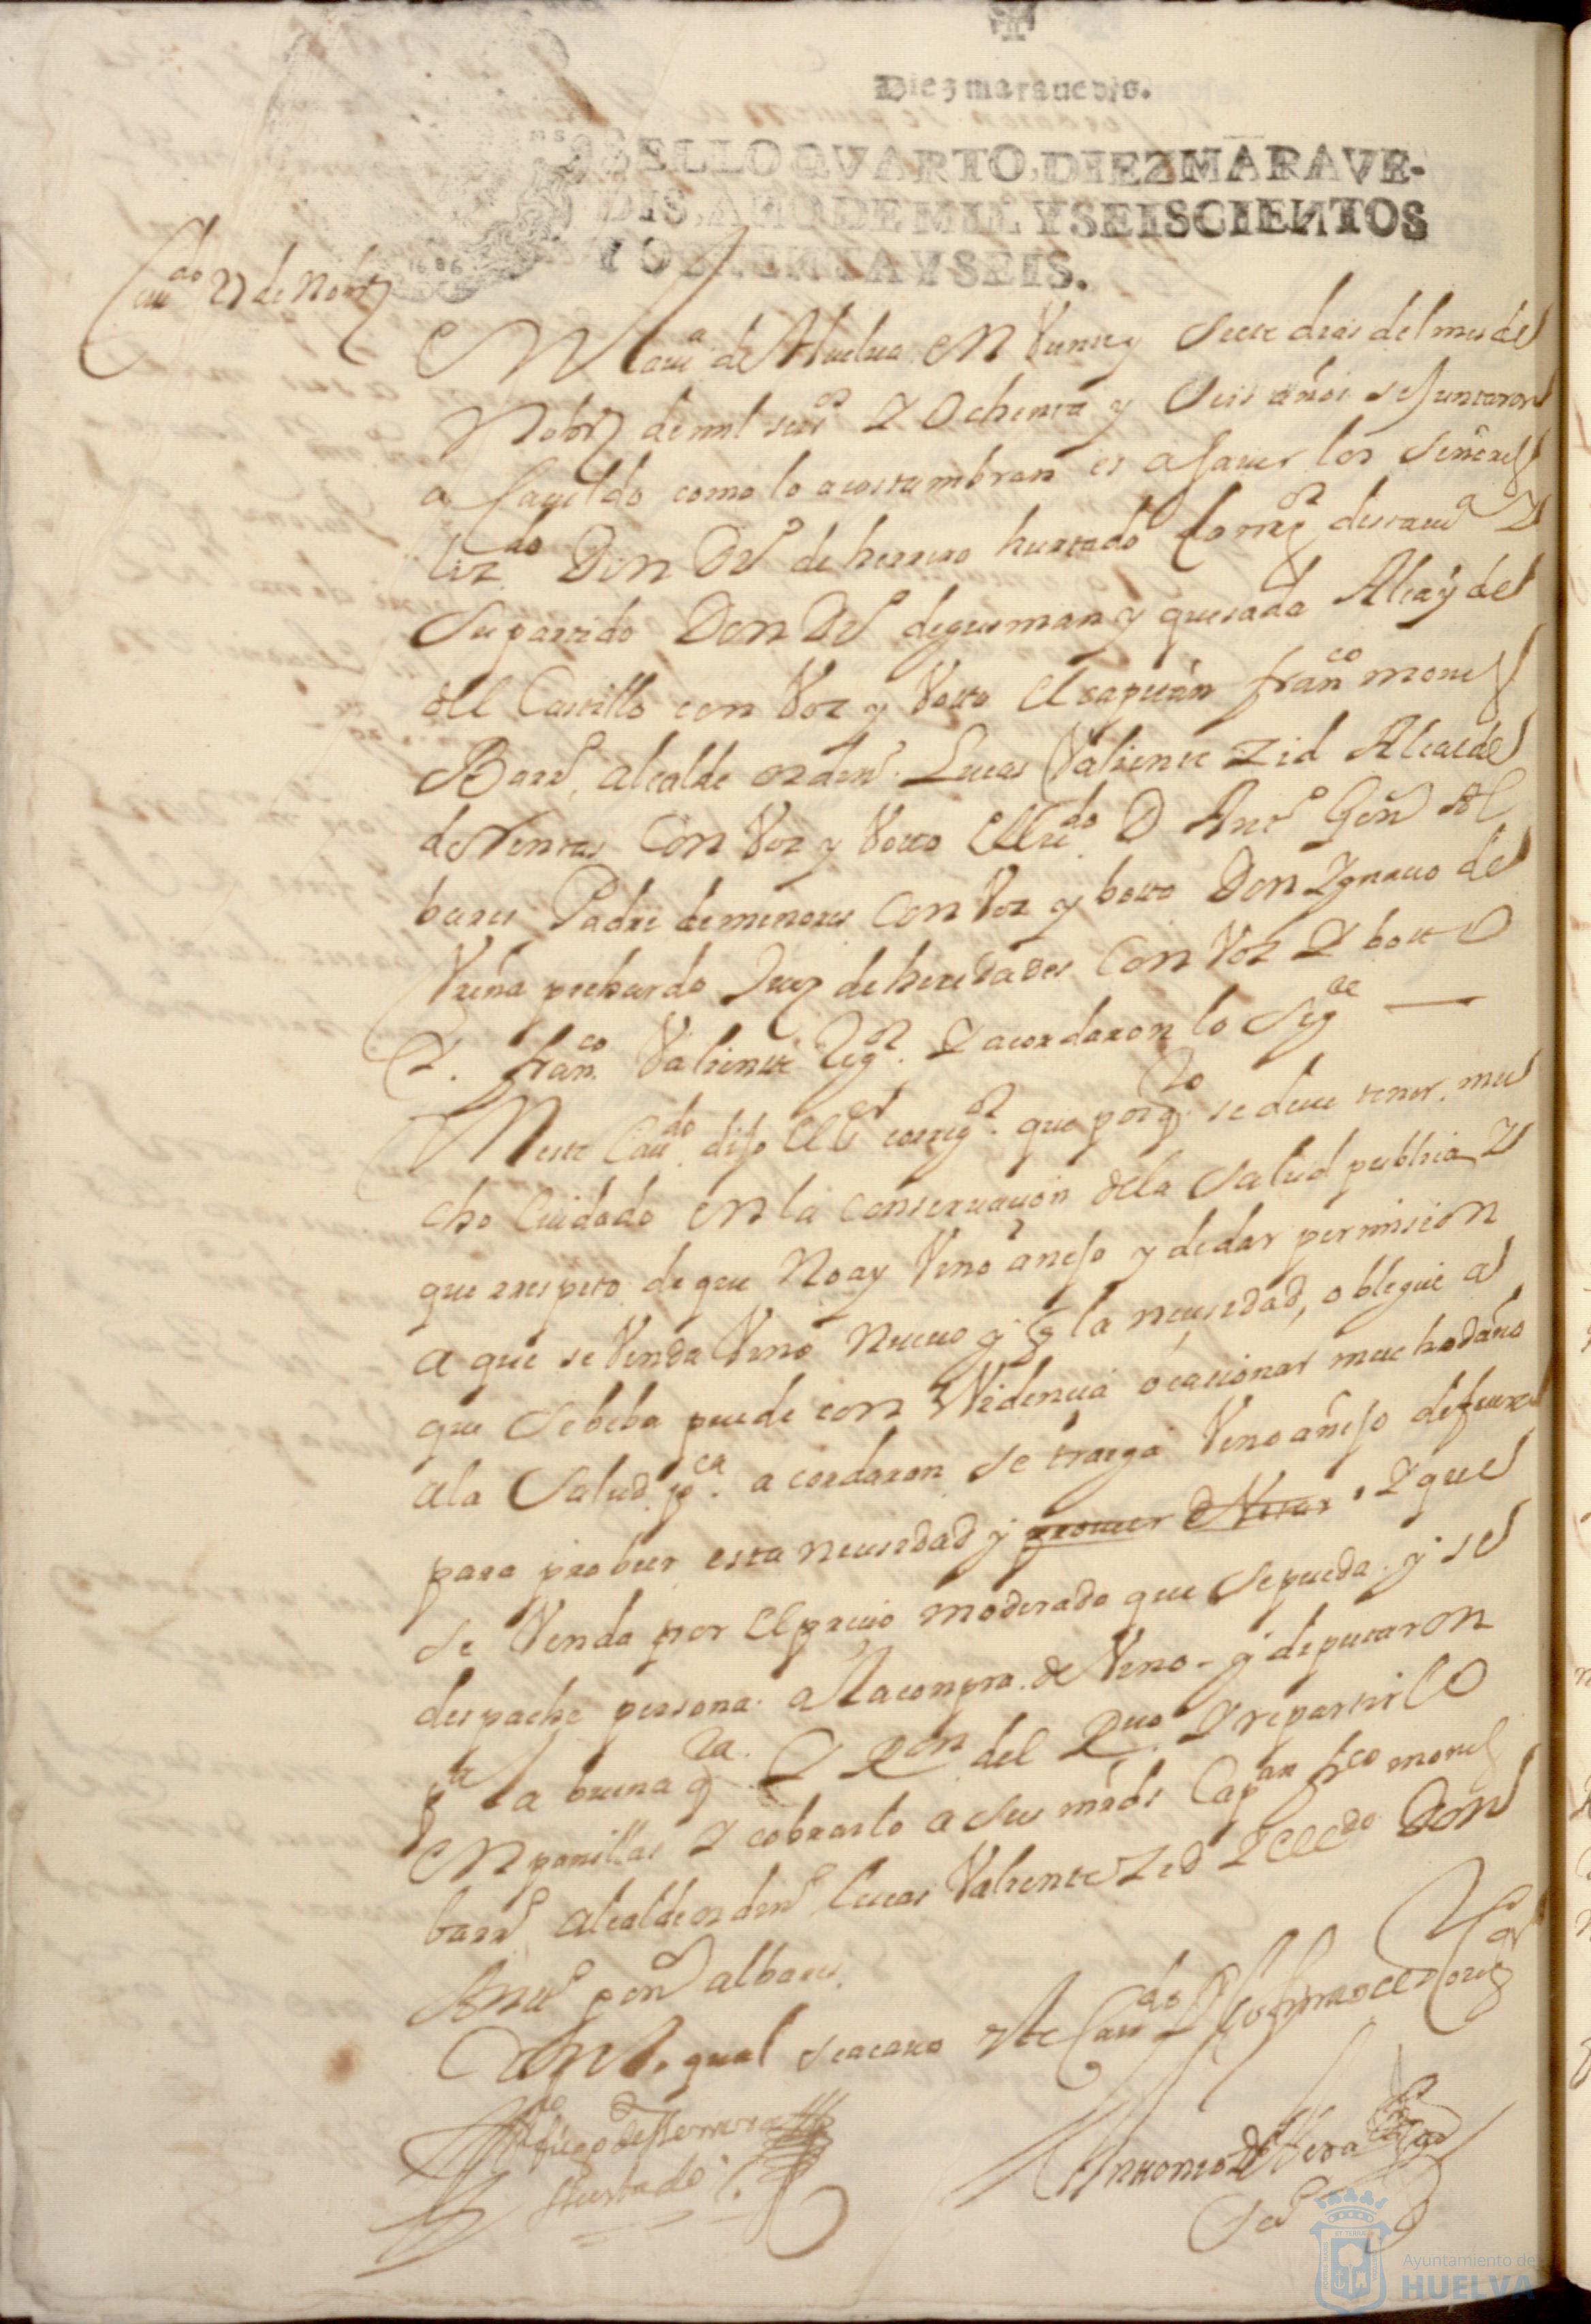 Diez maravedis.
SELLO QVARTO, DIEZ MARAVE-
DIS, AÑO DE MIL Y SEISCIENTOS
Y OCHENTA Y SEIS.
1686
Cau.do 27 de Nobre
En la uª de Huelua en Veinte y Siete dias del mes de
Nobre de mil seisºˢ Y Ochenta y Seis años se Juntaron
a Cauildo como lo acostumbran es a sauer los Señores
Liz.do Don Dº de herrera hurtado Corregºʳ desta uª Y
Su partido Don Dº de gusman y quesada Alcayde
del Castillo con Voz y Votto El capitan fran.co mones
Barº, alcalde ordinº. Lucas Valiente Zid Alcalde
de Rentas Con Voz y Votto El Liz.do D Antº Gon Al
bares Padre de menores Con Voz y botto Don Ygnacio de
Vreña Juez de heredades Con Voz Y botto
Y. fran.co Valiente Regºʳ. Y acordaron lo Sig.te
En este Cau.do dijo El Sʳ corregºʳ. que porq. se deue tener mu
cho Cuidado en la conseruacion de la Salud publica Y
que rrespeto de que No ay Vino anejo y de dar permision
a que se Venda Vino Nueuo y q la necesidad, obligue a
que se beba puede con Evidencia ocasionar mucho daño
a la Salud p.ca. acordaron Se traiga Vino añejo de fuera
para probeer esta necesidad y . Y que
Se Venda por El precio moderado que Se pueda. y se
despache persona. a la compra. de Vino - y deputaron
pª la buena q.ta Y Raon del Y repartirlo
En panillas Y cobrarlo a Sus mrds Cap.an fr.co mones
barº Alcalde ordinº Lucas Valiente Zid Y El Liz.do Don
Antº gon albares.
Con lo qual se acauo este Cau.do Y lo firmaron
Dº de Herrera
Hurtado
Antonio de Vera
Ayuntamiento de
HUELVA